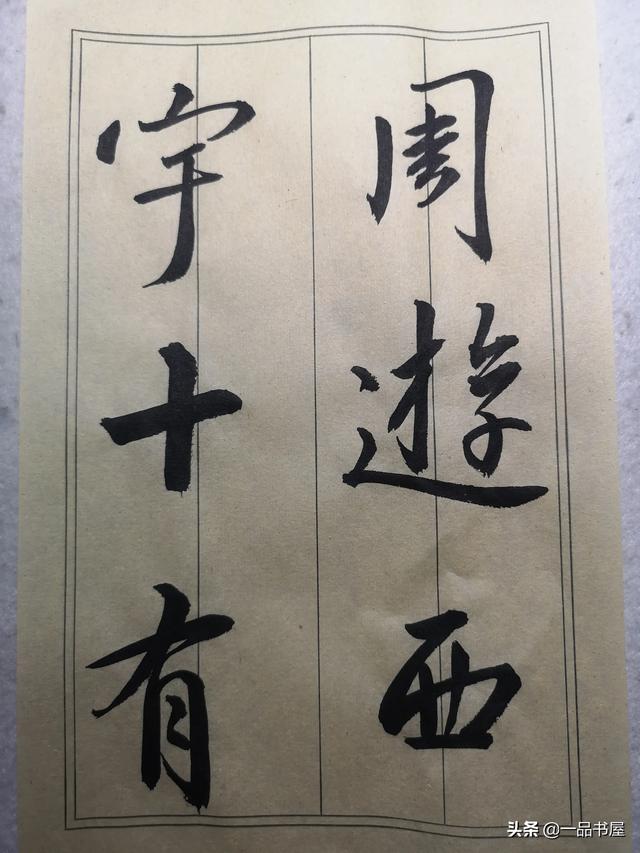 周遊西
宇十有
头条 @一品书屋